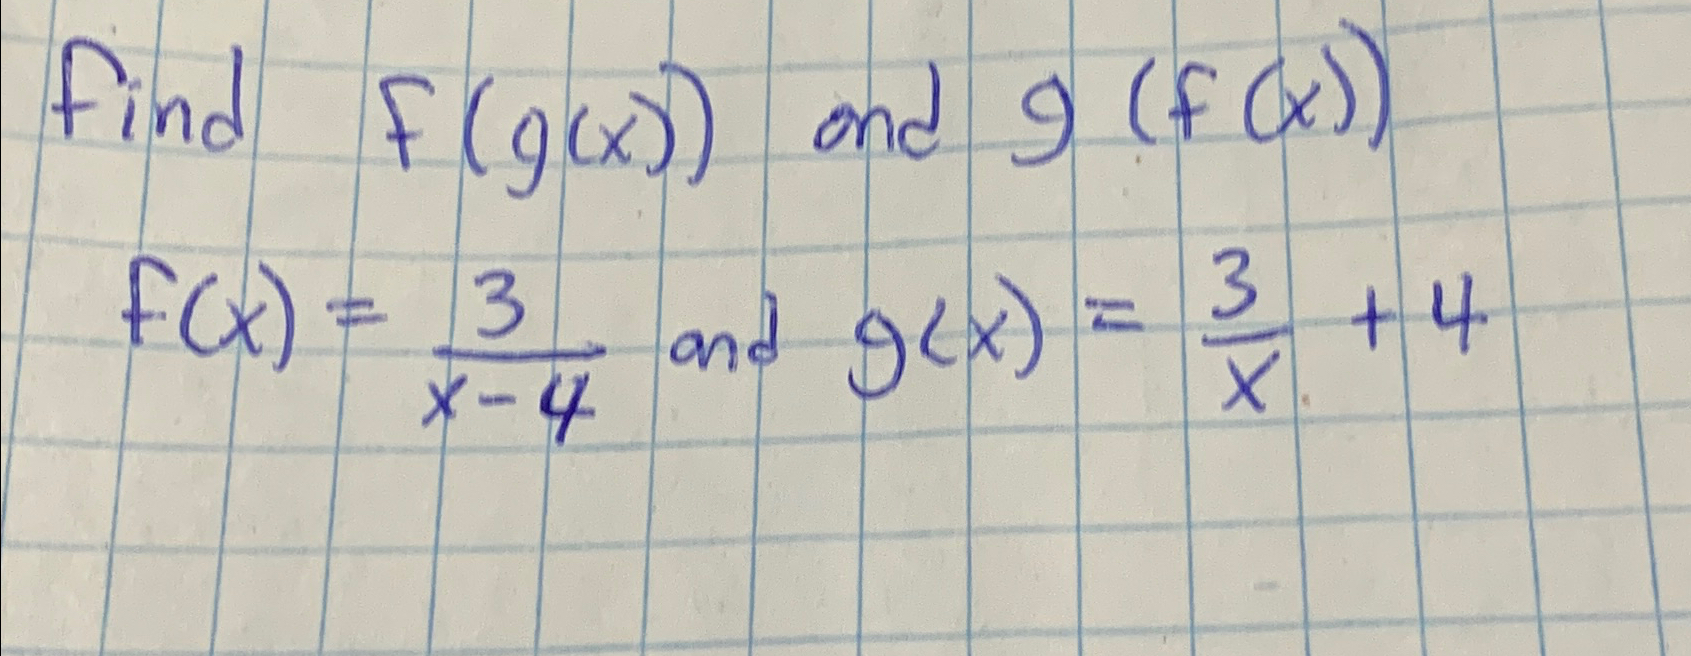 find f(g(x)) and g(f(x))
f(x) = 3/(x-4) and g(x) = 3/x + 4